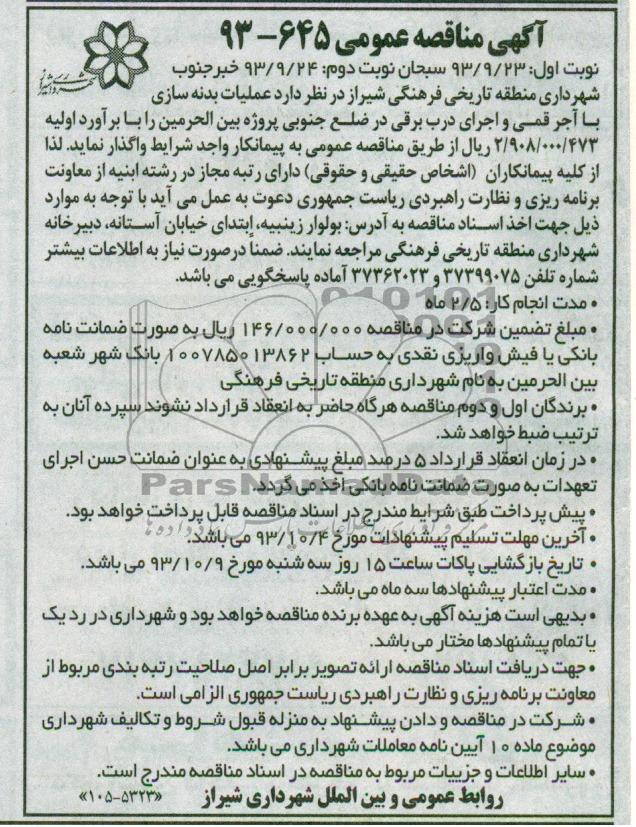 آگهی مناقصه عمومی ۶۴۵- ۹۳
نوبت اول: ۹۳/۹/۲۳ سبحان نوبت دوم: ۹۳/۹/۲۴ خبرجنوب
شهرداری منطقه تاریخی فرهنگی شیراز در نظر دارد عملیات بدنه سازی
با آجر قمی و اجرای درب برقی در ضلع جنوبی پروژه بین الحرمین را با برآورد اولیه
۲/۹۰۸/۰۰۰/۴۷۳ ریال از طریق مناقصه عمومی به پیمانکار واجد شرایط واگذار نماید. لذا
از کلیه پیمانکاران (اشخاص حقیقی و حقوقی) دارای رتبه مجاز در رشته ابنیه از معاونت
برنامه ریزی و نظارت راهبردی ریاست جمهوری دعوت به عمل می آید با توجه به موارد
ذیل جهت اخذ اسناد مناقصه به آدرس: بولوار زینبیه، ابتدای خیابان آستانه، دبیرخانه
شهرداری منطقه تاریخی فرهنگی مراجعه نمایند. ضمنا درصورت نیاز به اطلاعات بیشتر
شماره تلفن ۳۷۳۹۹۰۷۵ و ۳۷۳۶۲۰۲۳ آماده پاسخگویی می باشد.
• مدت انجام کار: ۲/۵ ماه
• مبلغ تضمین شرکت در مناقصه ۱۴۶/۰۰۰/۰۰۰ ریال به صورت ضمانت نامه
بانکی یا فیش واریزی نقدی به حساب ۱۰۰۷۸۵۰۱۳۸۶۲ بانک شهر شعبه
بین الحرمین به نام شهرداری منطقه تاریخی فرهنگی
• برندگان اول و دوم مناقصه هرگاه حاضر به انعقاد قرارداد نشوند سپرده آنان به
ترتیب ضبط خواهد شد.
• در زمان انعقاد قرارداد ۵ درصد مبلغ پیشنهادی به عنوان ضمانت حسن اجرای
تعهدات به صورت ضمانت نامه بانکی اخذ می گردد.
ParsNamadData
• پیش پرداخت طبق شرایط مندرج در اسناد مناقصه قابل پرداخت خواهد بود.
• آخرین مهلت تسلیم پیشنهادات مورخ ۹۳/۱۰/۴ می باشد.
• تاریخ بازگشایی پاکات ساعت ۱۵ روز سه شنبه مورخ ۹۳/۱۰/۹ می باشد.
• مدت اعتبار پیشنهادها سه ماه می باشد.
• بدیهی است هزینه آگهی به عهده برنده مناقصه خواهد بود و شهرداری در رد یک
یا تمام پیشنهادها مختار می باشد.
• جهت دریافت اسناد مناقصه ارائه تصویر برابر اصل صلاحیت رتبه بندی مربوط از
معاونت برنامه ریزی و نظارت راهبردی ریاست جمهوری الزامی است.
• شرکت در مناقصه و دادن پیشنهاد به منزله قبول شروط و تکالیف شهرداری
موضوع ماده ۱۰ آیین نامه معاملات شهرداری می باشد.
• سایر اطلاعات و جزییات مربوط به مناقصه در اسناد مناقصه مندرج است.
روابط عمومی و بین الملل شهرداری شیراز
«۱۰۵-۵۳۲۳»